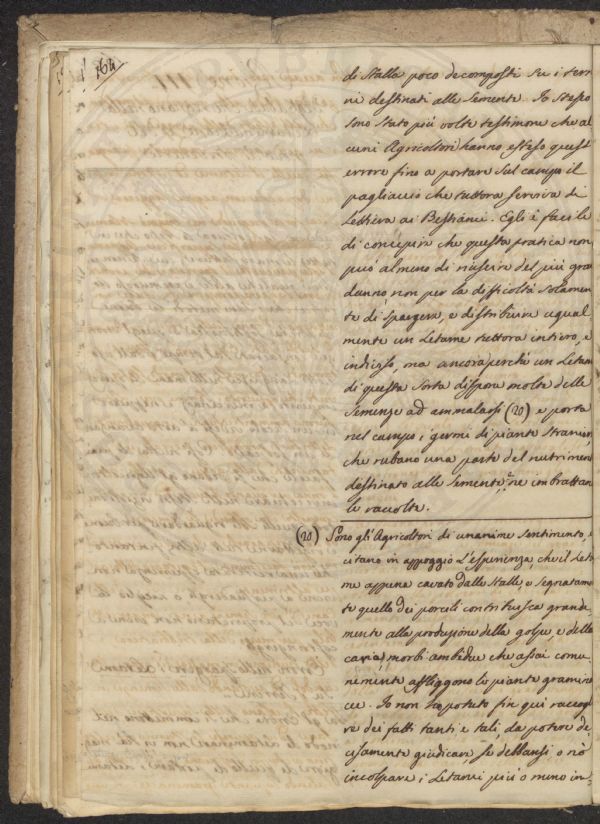 164
di Stalla poco decomposti su i terre
ni destinati alle Semente. Io Stesso
sono Stato più volte testimone che al
cuni Agricoltori hanno esteso quest
errore fino a portare Sul campo il
pagliaccio che tuttora serviva di
Lettiera ai Bestiami. Egli è facile
di concepire che questa pratica non
può almeno di riuscire del più gra
danno, non per la difficoltà Solamen
te di Spargere, e distribuire egual
mente un Letame tuttora intiero, e
indigesto, ma ancora perchè un Letam
di questa Sorta dispone molte delle
Semenze ad ammalarsi (20) e porta
nel campo i germi di piante Straniere,
che rubano una parte del nutrimen
destinato alle Semente, e ne imbrattan
le raccolte.
(20) Sono gl'Agricoltori di unanime Sentimento, e
citano in appoggio L'esperienza che il Leta
me appena cavato dalle Stalle, e Segnatame
te quello dei porcili contribuisca grande
mente alla produzione della golpe, e della
carie, morbi ambedue che assai comu
nemente affliggono le piante gramina
cee. Io non ho potuto fin qui racco
re dei fatti tanti e tali, da potere de
cisamente giudicare, se debbansi o nò
incolpare i Letami più o meno in=